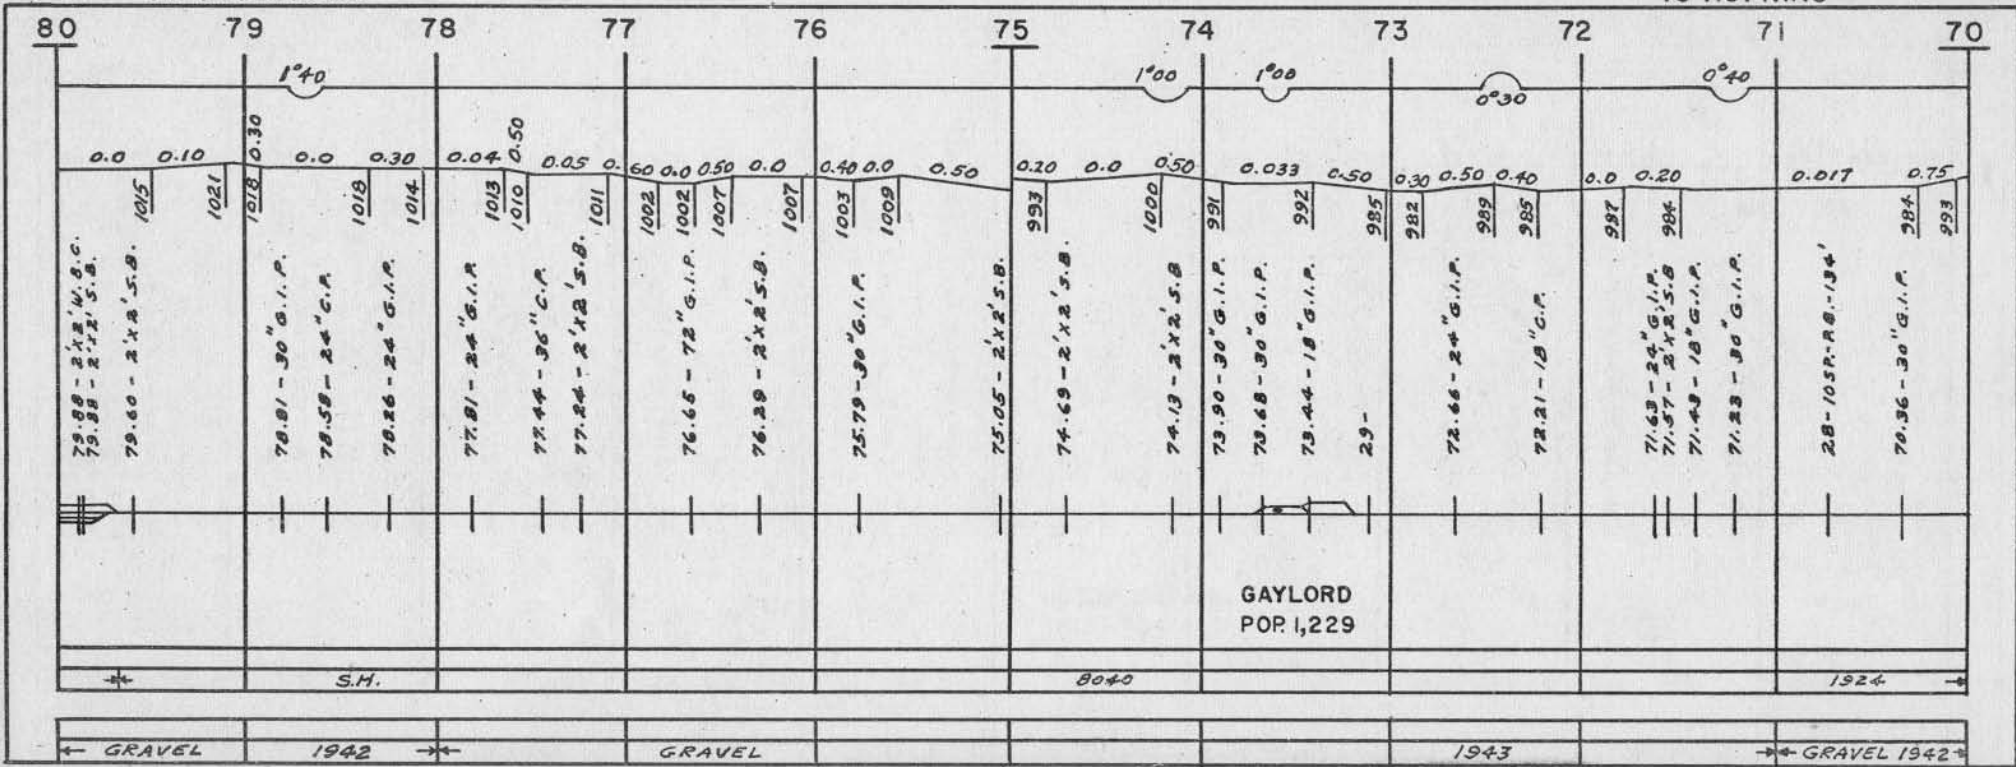 80 79 78 77 76 75 74 73 72 71 70
1°40 1°00 1°00 0°30 0°40
0.0 0.10 0.30 0.0 0.30 0.04 0.50 0.05 0.60 0.0 0.50 0.0 0.40 0.0 0.50 0.20 0.0 0.50 0.033 0.50 0.30 0.50 0.40 0.0 0.20 0.017 0.75
1015 1021 1018 1018 1014 1013 1010 1011 1002 1002 1007 1007 1003 1009 993 1000 991 992 985 982 989 985 987 984 984 993
79.88 - 2'X2' W.B.C.
79.88 - 2'X2' S.B.
79.60 - 2'X2' S.B.
78.81 - 30" G.I.P.
78.58 - 24" C.P.
78.26 - 24" G.I.P.
77.81 - 24" G.I.P.
77.44 - 36" C.P.
77.24 - 2'X2' S.B.
76.65 - 72" G.I.P.
76.29 - 2'X2' S.B.
75.79 - 30" G.I.P.
75.05 - 2'X2' S.B.
74.69 - 2'X2' S.B.
74.13 - 2'X2' S.B
73.90 - 30" G.I.P.
73.68 - 30" G.I.P.
73.44 - 18" G.I.P.
29 -
72.66 - 24" G.I.P.
72.21 - 18" C.P.
71.63 - 24" G.I.P.
71.57 - 2'X2' S.B
71.43 - 18" G.I.P.
71.23 - 30" G.I.P.
28 - 10SP.-RB.-134'
70.36 - 30" G.I.P.
GAYLORD
POP. 1,229
S.H. 8040 1924
GRAVEL 1942 GRAVEL 1943 GRAVEL 1942